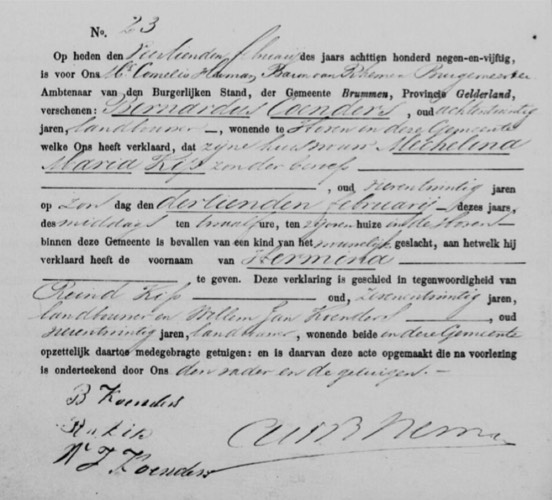 No. 23
Op heden den Veertienden februarij des jaars achttien honderd negen-en-vijftig,
is voor Ons Mr. Cornelis Baron van Burgemeester
Ambtenaar van den Burgerlijken Stand, der Gemeente Brummen, Provincie Gelderland,
verschenen: Bernardus Coenders, oud achtentwintig
jaren, landbouwer, wonende te in deze Gemeente
welke Ons heeft verklaard, dat zijne huisvrouw Michelina
Maria Kip zonder beroep
, oud zevenentwintig jaren
op Zon dag den dertienden februarij dezes jaars,
des middags ten twaalf ure, ten zijnen huize in
binnen deze Gemeente is bevallen van een kind van het geslacht, aan hetwelk hij
verklaard heeft de voornaam van Hermina
te geven. Deze verklaring is geschied in tegenwoordigheid van
Reind Kip oud, jaren,
landbouwer en Willem Jan Koenders, oud
jaren, landbouwer, wonende beide in deze Gemeente
opzettelijk daartoe medegebragte getuigen: en is daarvan deze acte opgemaakt die na voorlezing
is onderteekend door Ons den vader en de getuigen.
B Koenders
R Kip
W J Koenders